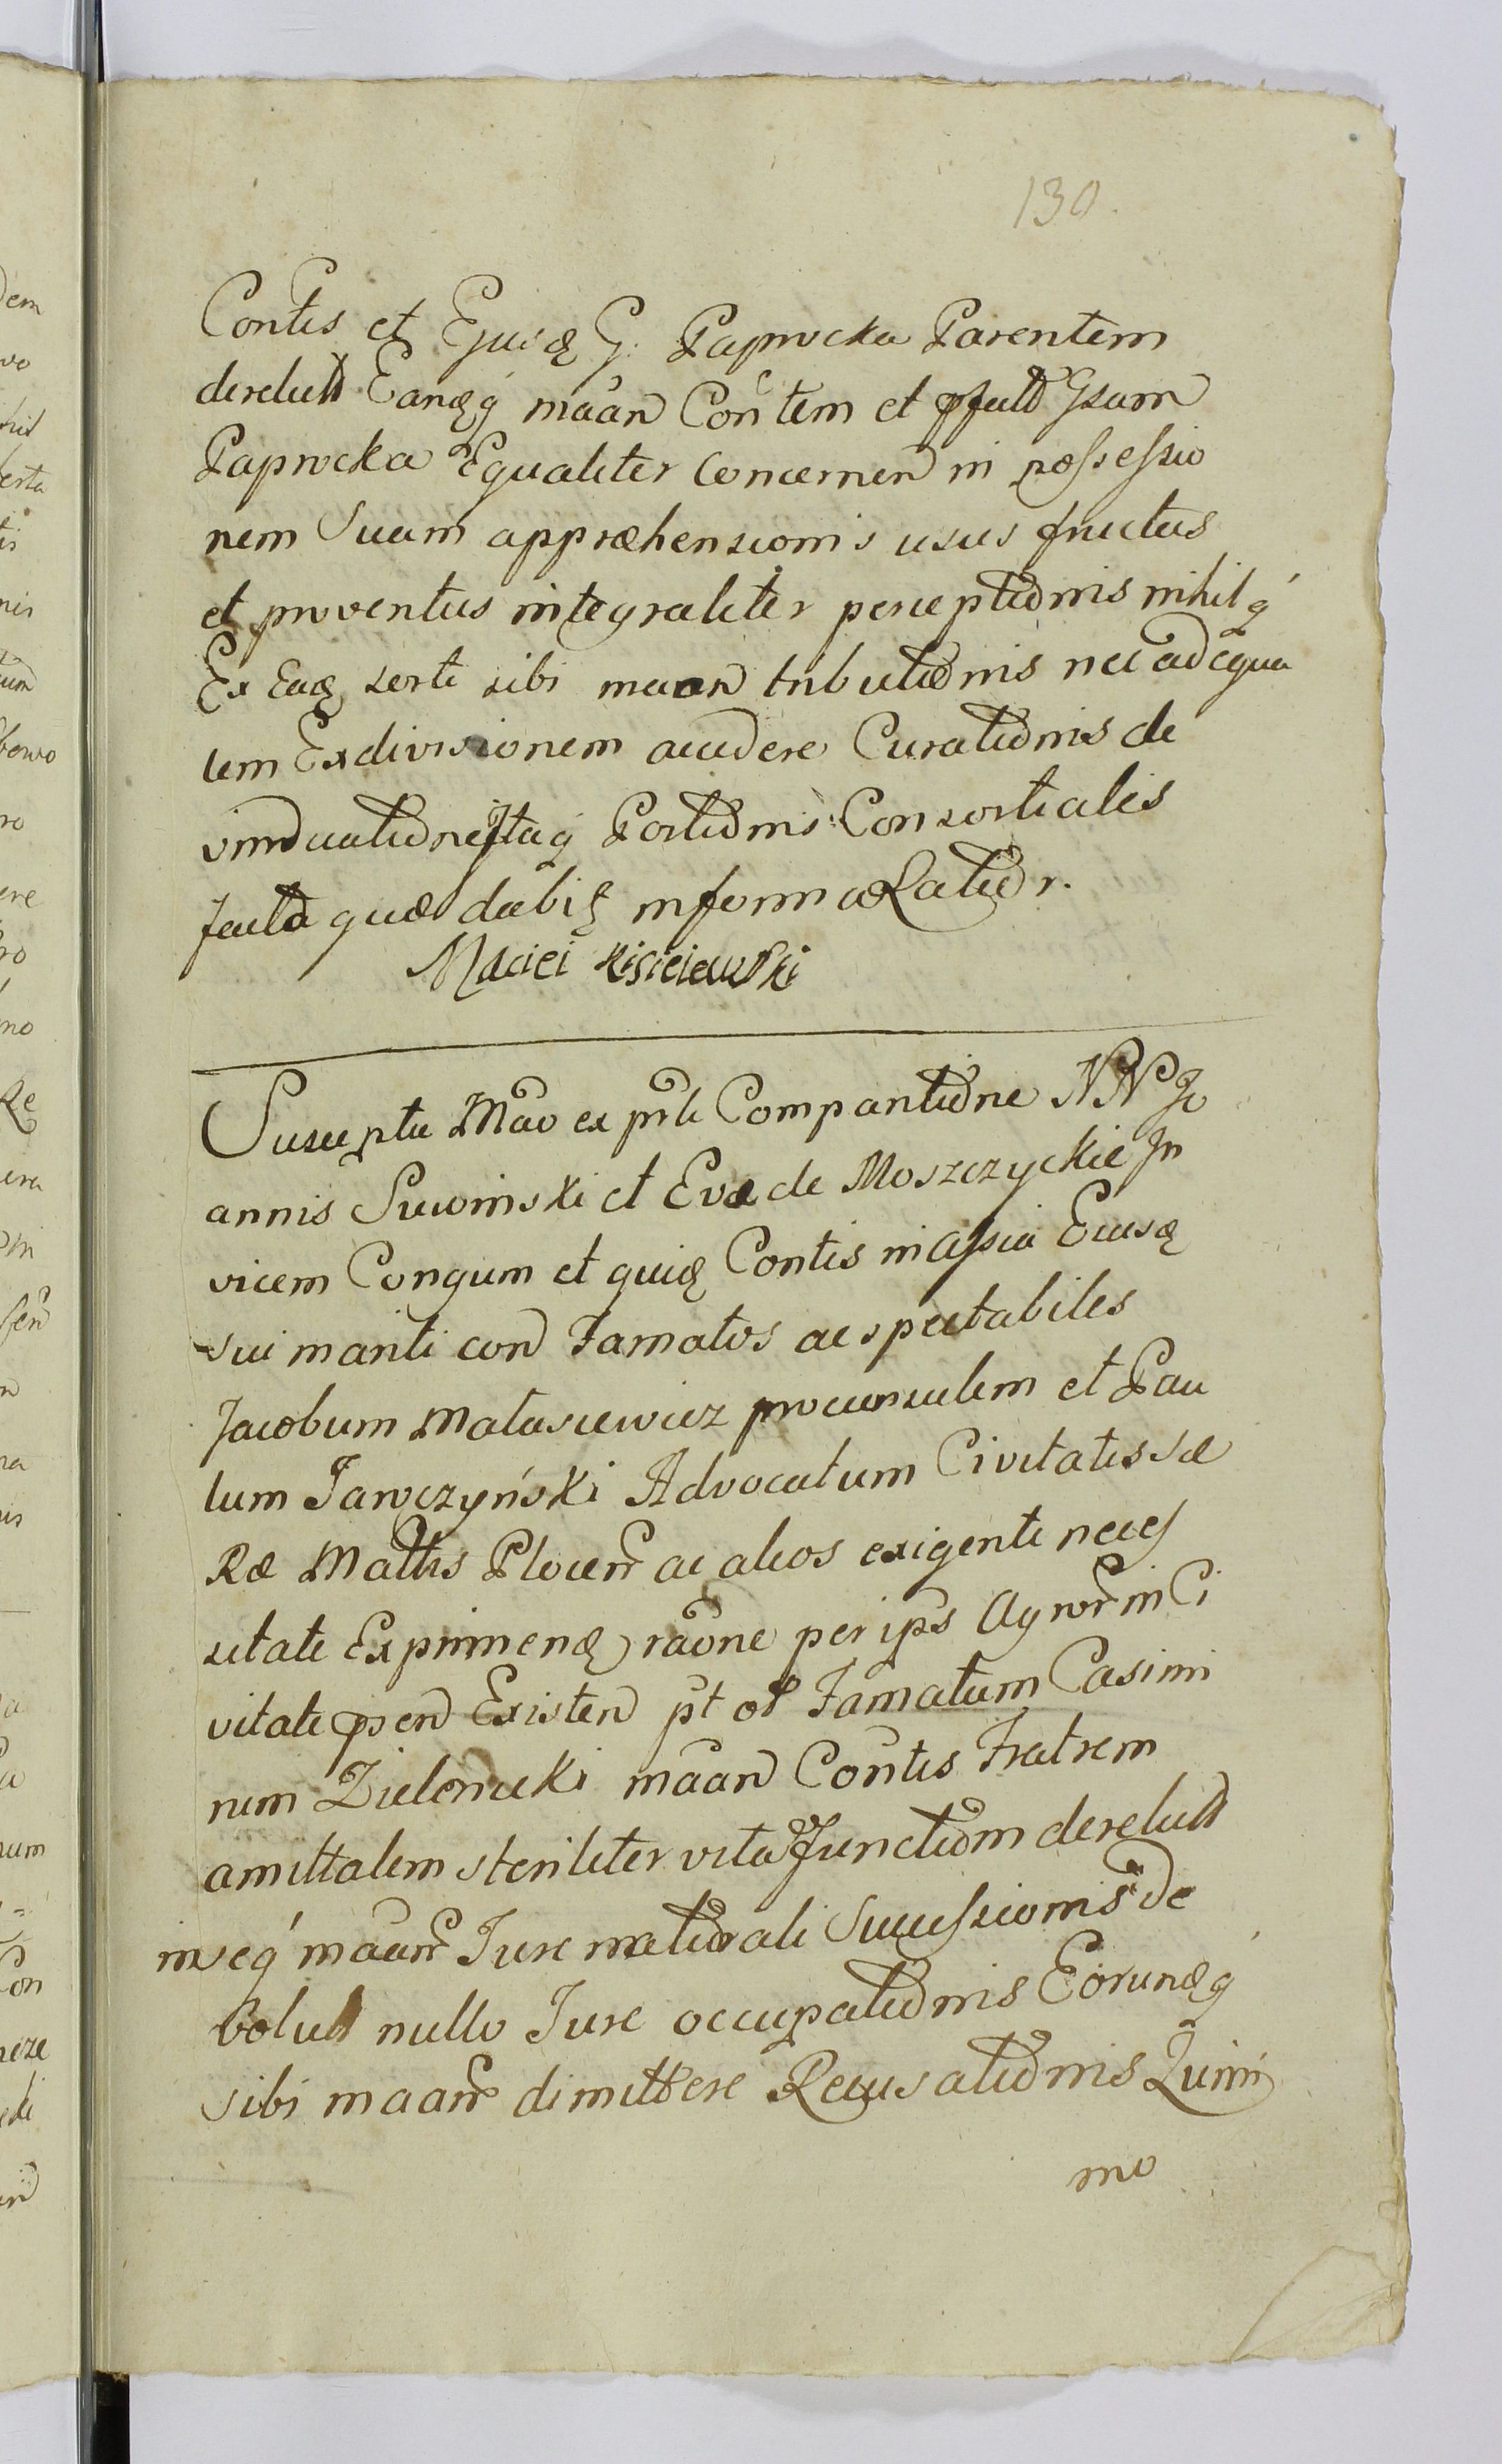 130.
Contis et Ejusq G. Paprocka Parentem
derelictt Eandqq maan Contem et pfatt Gsam
Paprocka Equaliter Concernen in possessio
nem Suam appræhensionis usus fructus
et proventus integraliter perceptionis nihilq
Ex Eadq sorte sibi maan tributionis nec adæqua
tem Exdivisionem accedere Curationis de
vindicatione Itaq Portionis Consortialis
facta quæ dabiq informæ Latior.
Maciei Kisielewski
Suscepta Mão ex prli Comparitione NN Jo
annis Suwinski et Evæ de Moszczyckie In
vicem Congum et quidq Contis in assia Eiusq
sui mariti con Famatos ac spectabiles
Jacobum Matusiewicz proconsulem et Pau
lum Jarczyński Advocatum Civitatis Sæ
Ræ Mattis Plocen ac alios exigente neces
sitate Exprimendq raone per ips Agror in Ci
vitate pen Existen pt ol Famatum Casimi
rum Zielenicki maan Contis Fratrem
amittalem steriliter vita functtm derelictt
in seq maan Jure naturali Successionis de
volutt nullo Jure occupationis Eorundqq
sibi maan dimittere Recusationis Quini
mo